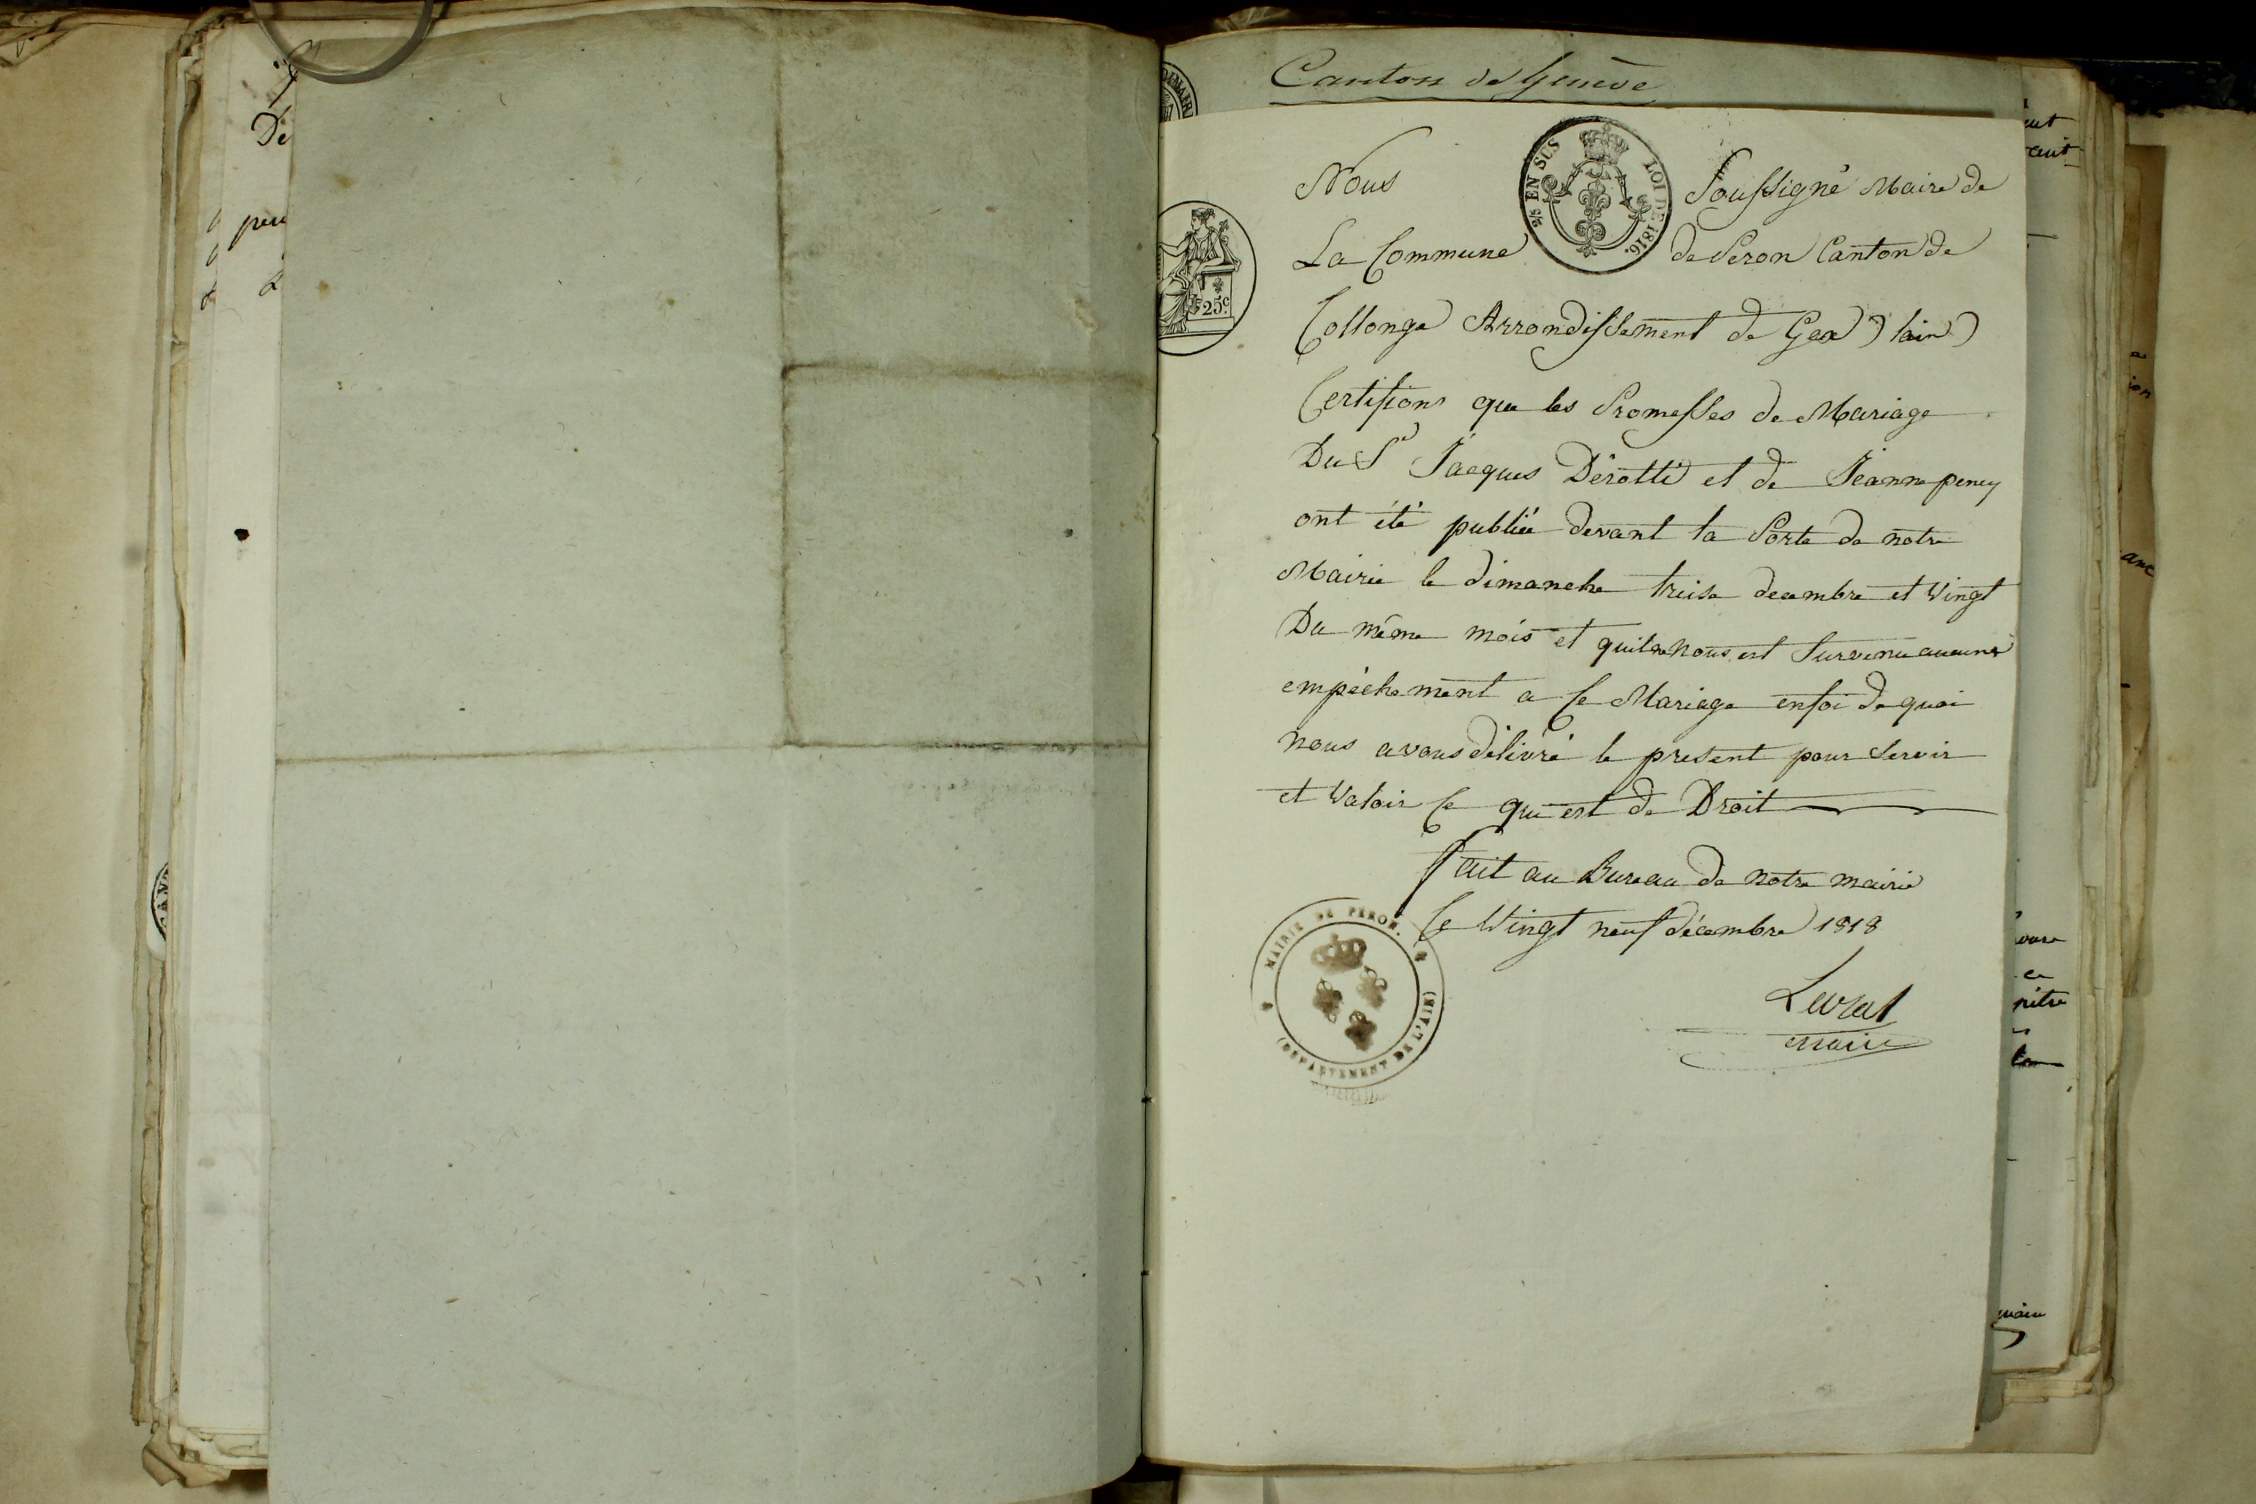 Canton de Genève
Nous Soussigné Maire de
La Commune de Peron Canton de
Collonge Arrondissement de Gex ) lain )
Certifions que les Promesses de Mariage
Du Sr Jacques Dérotti et de Jeanne peney
ont été publiée devant la Porte de notre
Mairie le dimanche treise decembre et Vingt
Du même mois et quil ne nous est Survenu aucune
empêchement a Ce Mariage enfoi de quoi
nous avons délivré le present pour Servir
et Valoir Ce que est de Droit
Fait au Bureau de notre mairie
Ce Vingt neuf décembre 1818
Levrat
maire
2/5 EN SUS LOI DE 1816.
25c
MAIRIE DE PERON.
(DEPARTEMENT DE L'AIN)
De
peu